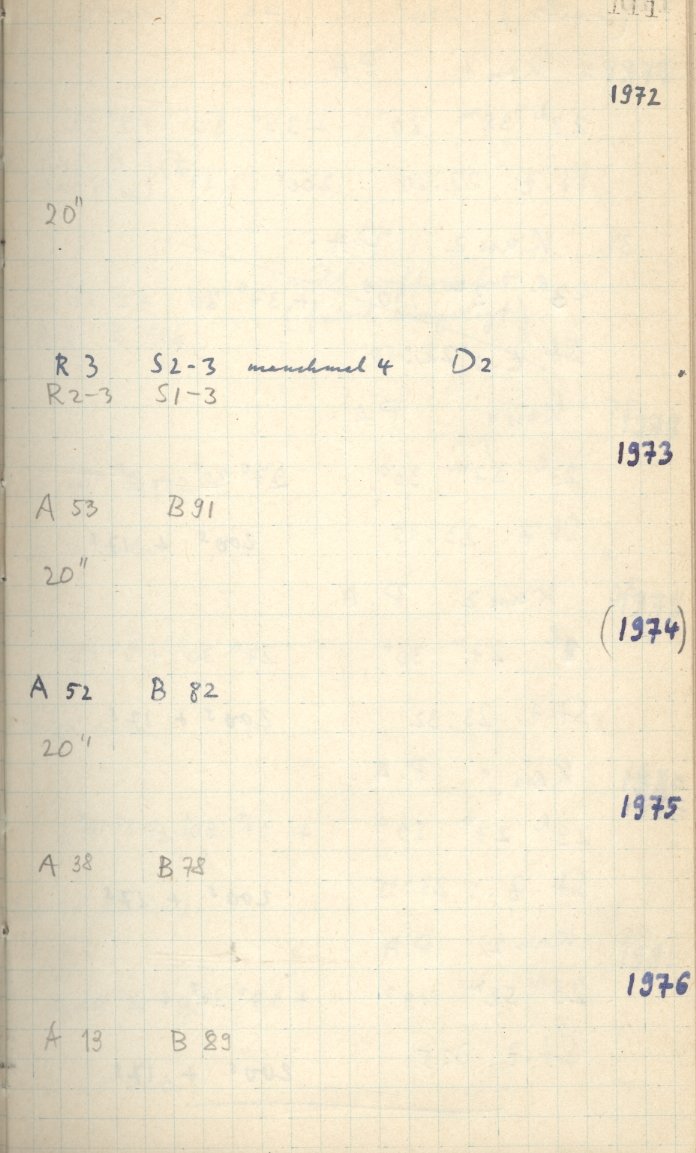 1972
20"
R 3 S2-3 manchmal 4 D2
R2-3 S1-3
1973
A 53 B 91
20"
(1974)
A 52 B 82
20"
1975
A 38 B 78
1976
A 13 B 89